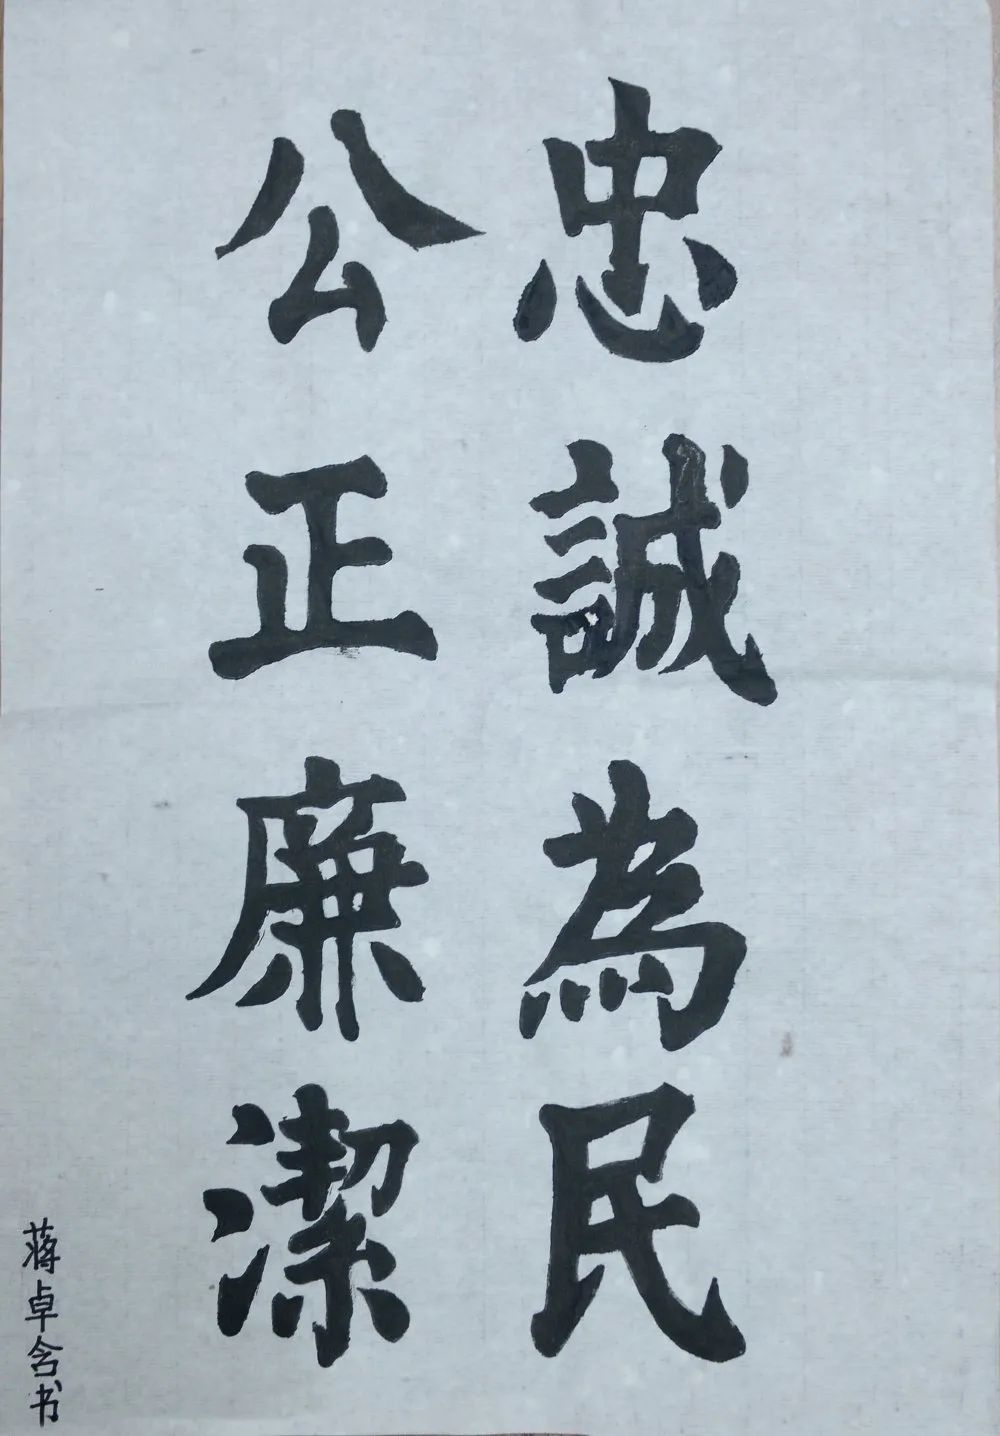 忠誠為民
公正廉潔
蒋卓含书